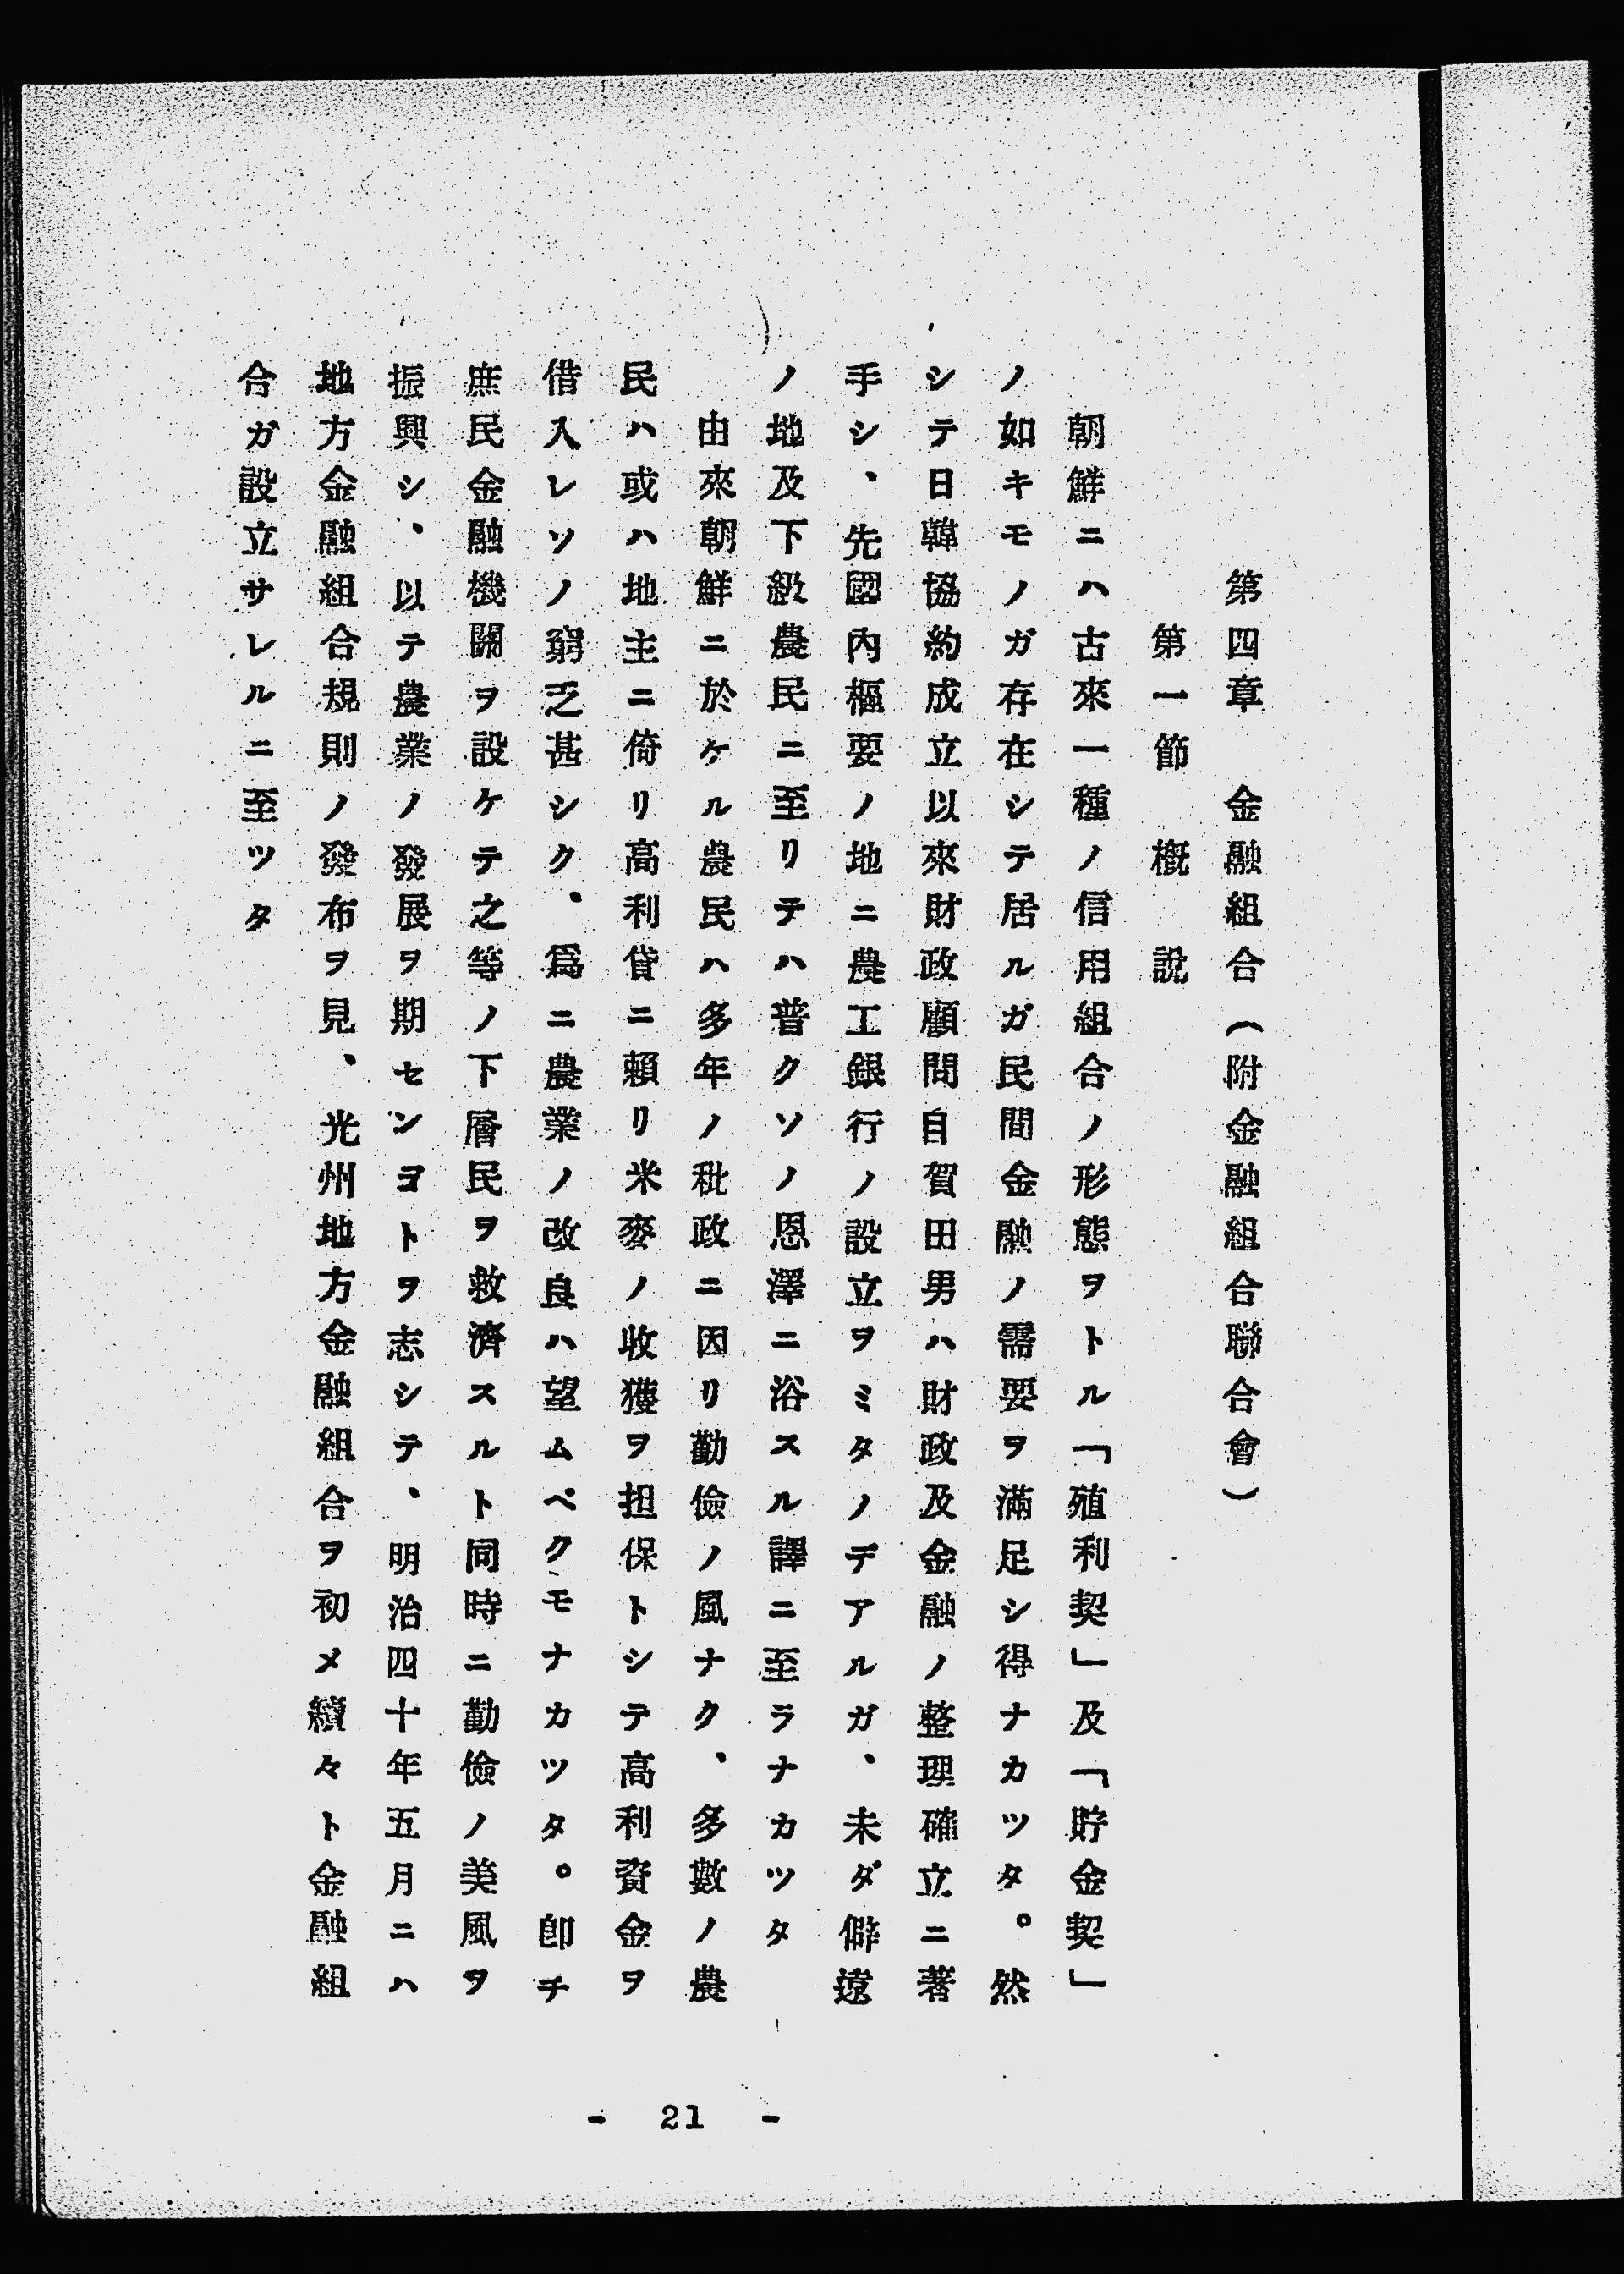 第四章　金融組合（附金融組合聯合會）
第一節　槪　説
朝鮮ニハ古來一種ノ信用組合ノ形態ヲトル「殖利契」及「貯金契」
ノ如キモノガ存在シテ居ルガ民間金融ノ需要ヲ滿足シ得ナカツタ。然
シテ日韓協約成立以來財政顧問目賀田男ハ財政及金融ノ整理確立ニ著
手シ、先國內樞要ノ地ニ農工銀行ノ設立ヲミタノデアルガ、未ダ僻遠
ノ地及下級農民ニ至リテハ普クソノ恩澤ニ浴スル譯ニ至ラナカツタ
由來朝鮮ニ於ケル農民ハ多年ノ秕政ニ因リ勤儉ノ風ナク、多數ノ農
民ハ或ハ地主ニ倚リ高利貸ニ賴リ米麥ノ收獲ヲ担保トシテ高利資金ヲ
借入レソノ窮乏甚シク、爲ニ農業ノ改良ハ望ムベクモナカツタ。卽チ
庶民金融機關ヲ設ケテ之等ノ下層民ヲ救濟スルト同時ニ勤儉ノ美風ヲ
振興シ、以テ農業ノ發展ヲ期センヨトヲ志シテ、明治四十年五月ニハ
地方金融組合規則ノ發布ヲ見、光州地方金融組合ヲ初メ續々ト金融組
合ガ設立サレルニ至ツタ
- 21 -